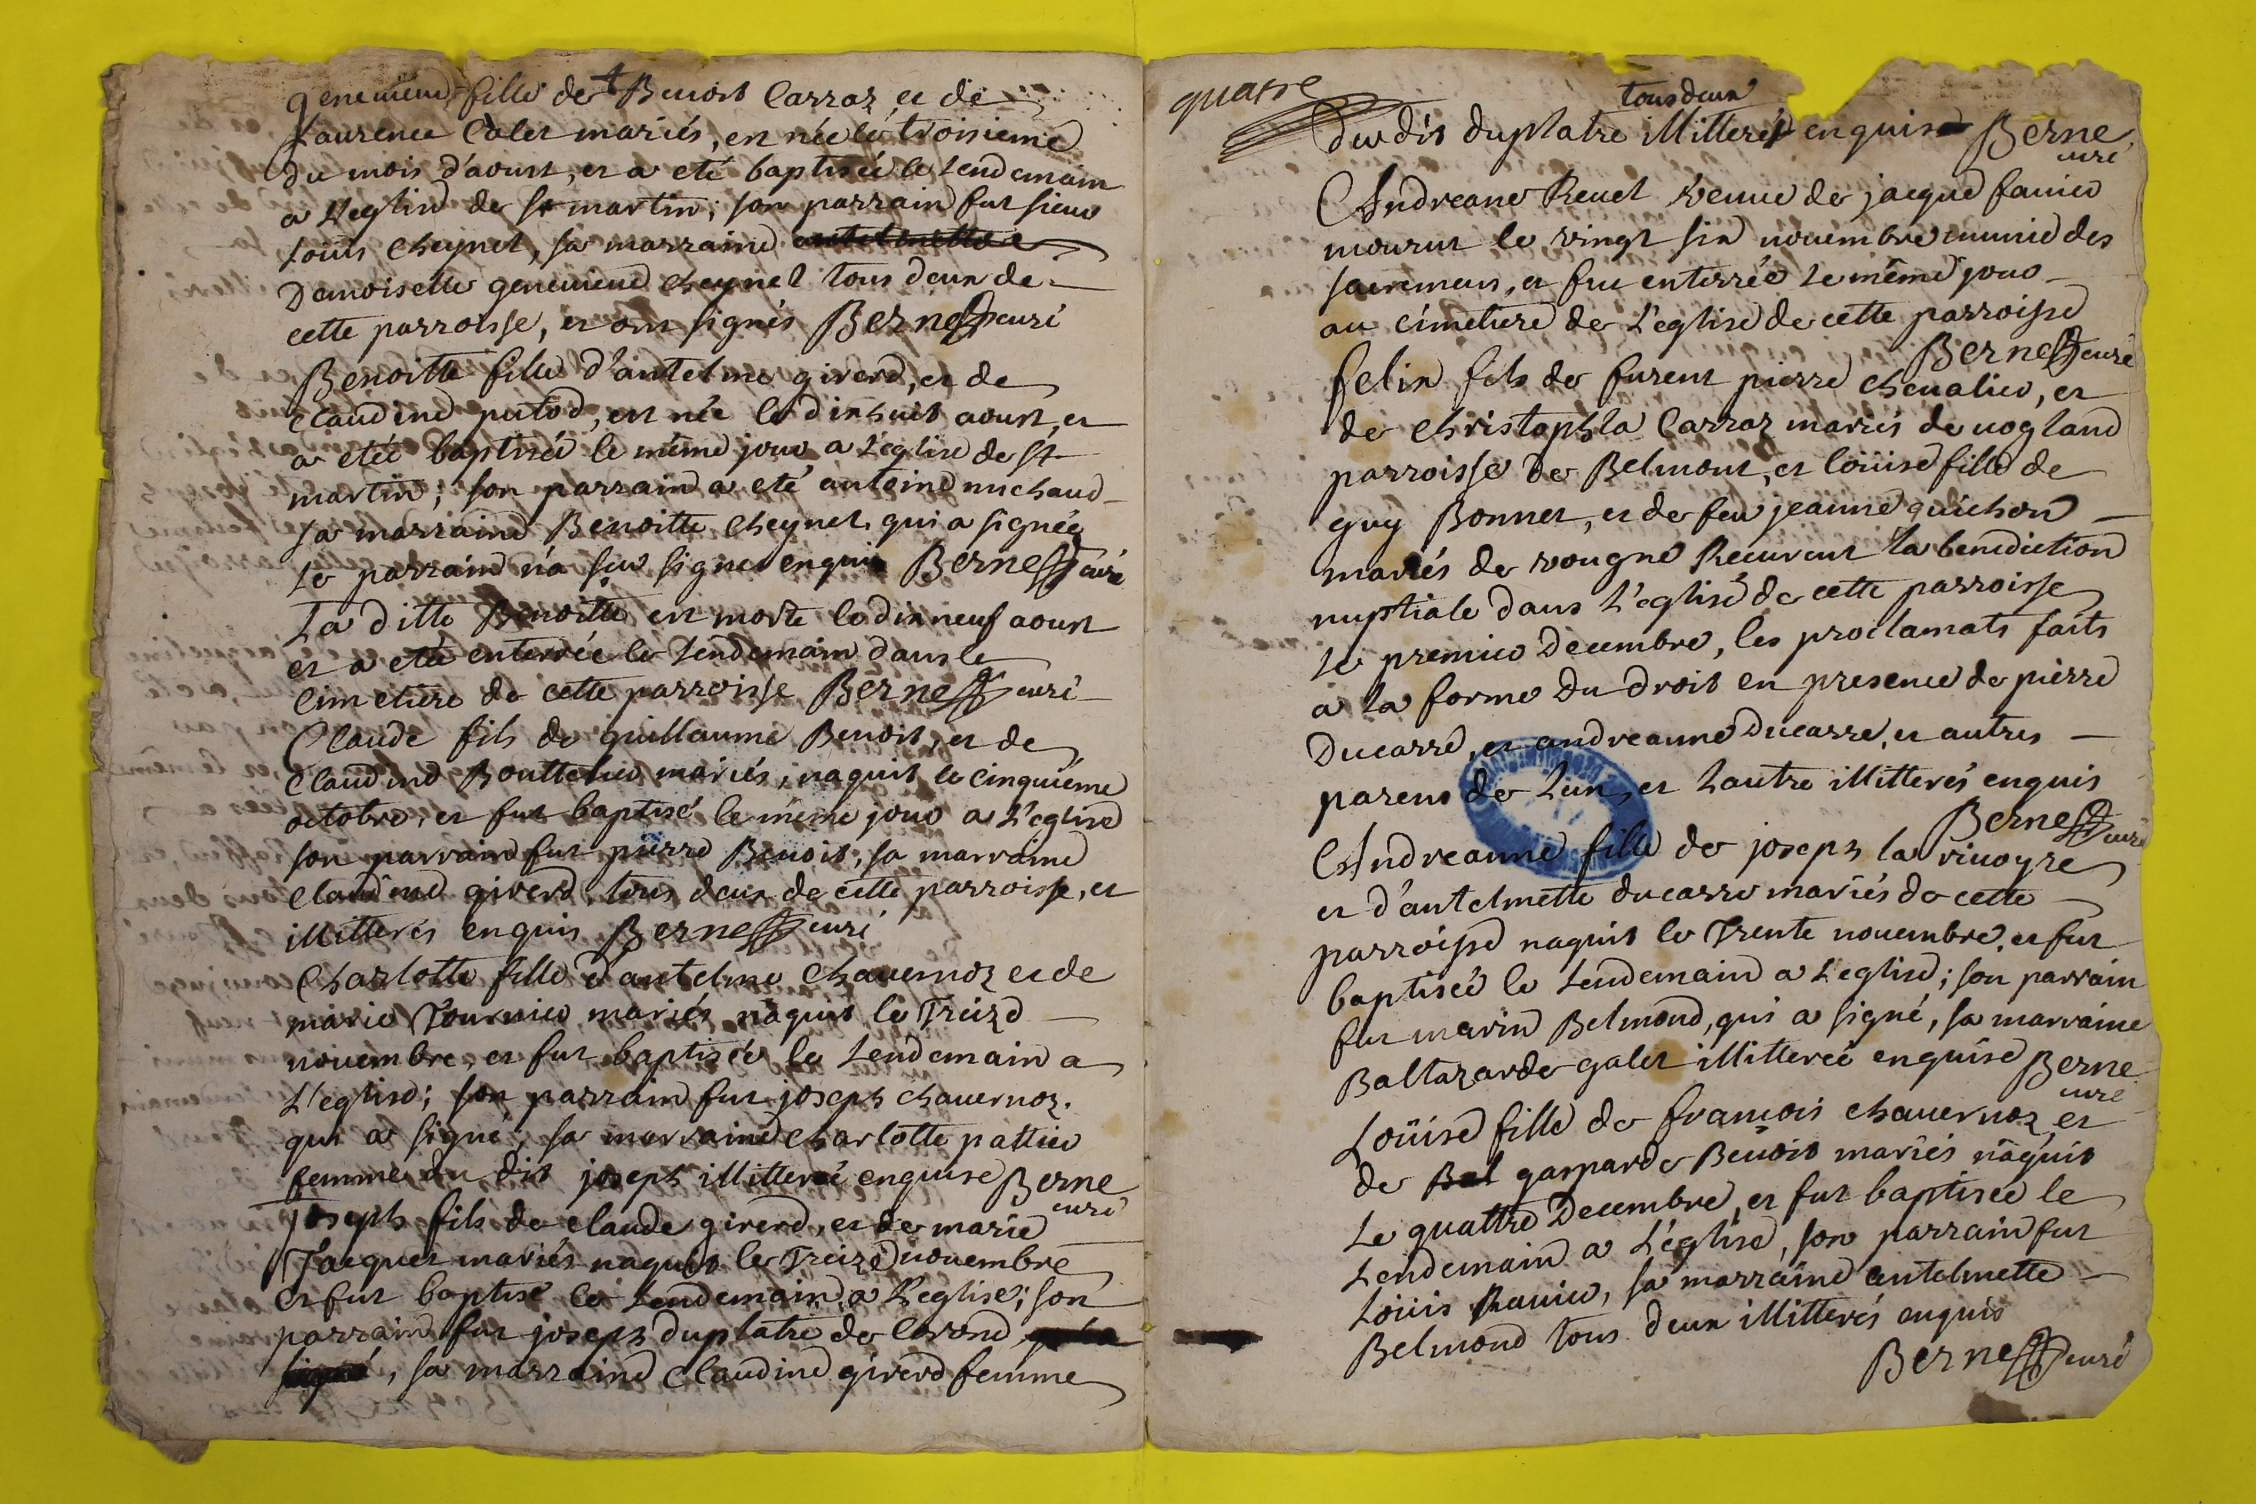 genevieve fille de Benoit Carraz et de
Laurence Calet mariés, est née le troisieme
du mois d'aoust, et a eté baptisée le lendemain
a l'eglise de St martin; son parrain fut sieur
Loüis cheynet, sa marraine
Demoiselle genevieve cheynet tous deux de
cette parroisse, et ont signés Berne curé
Benoitte fille d'antelme girerd, et de
claudine putod, est née le dixhuit aoust, et
a etée baptisée le même jour a l'eglise de St
martin; son parrain a eté antoine michaud
sa marraine Benoitte cheynet qui a signée
le parrain n'a sçu signer enquis Berne curé
La ditte Benoitte est morte le dixneuf aoust
et a etée enterrée le lendemain dans le
cimetiere de cette parroisse Berne curé
Claude fils de guillaume Benoit, et de
claudine Bouttelier mariés, naquit le cinquiéme
octobre, et fut baptisé le même jour a l'eglise
son parrain fut pierre Benoit, sa marraine
claudine girerd, tous deux de cette parroisse, et
illitterés enquis Berne curé
Charlotte fille d'antelme chavernoz et de
marie Tournier mariés naquit le Treize
novembre, et fut baptisée le lendemain a
l'eglise; son parrain fut joseph chavernoz.
qui a signé; sa marraine charlotte pattier
femme du dit joseph illitterée enquise Berne
curé
joseph fils de claude girerd, et de marie
Jacquet mariés naquit le Treize novembre
et fut baptisé le lendemain a l'eglise; son
parrain fut joseph duplatre de
, sa marraine Claudine girerd femme
quatre
tous deux
du dit duplatre illitterés enquis Berne
curé
Andreane Revet veuve de jacque favier
mourut le vingt six novembre munie des
sacremens, et fut enterrée le même jour
au cimetiere de l'eglise de cette parroisse
Berne curé
felix fils de furent pierre chevalier, et
de christophla Carraz mariés de vogland
parroisse de Belmont, et loüise fille de
guy Bonnet, et de feu jeanne guichon
mariés de vougne Recurent la benediction
nuptiale dans l'eglise de cette parroisse
le premier Decembre, les proclamats faits
a la forme du droit en presence de pierre
Ducarre, et andreanne Ducarre, et autres
parens de l'un, et l'autre illitterés enquis
Berne curé
Andreanne fille de joseph la rivoyre
et d'antelmette ducarre mariés de cette
parroisse naquit le Trente novembre, et fut
baptisée le lendemain a l'eglise; son parrain
fut marin Belmond, qui a signé, sa marraine
Baltazarde galet illitterée enquise Berne
curé
Loüise fille de francois chavernoz, et
de gasparde Benoit mariés naquit
le quattre Decembre, et fut baptisée le
lendemain a l'église, son parrain fut
Loüis Ravier, sa marraine antelmette
Belmond tous deux illitterés enquis
Berne curé